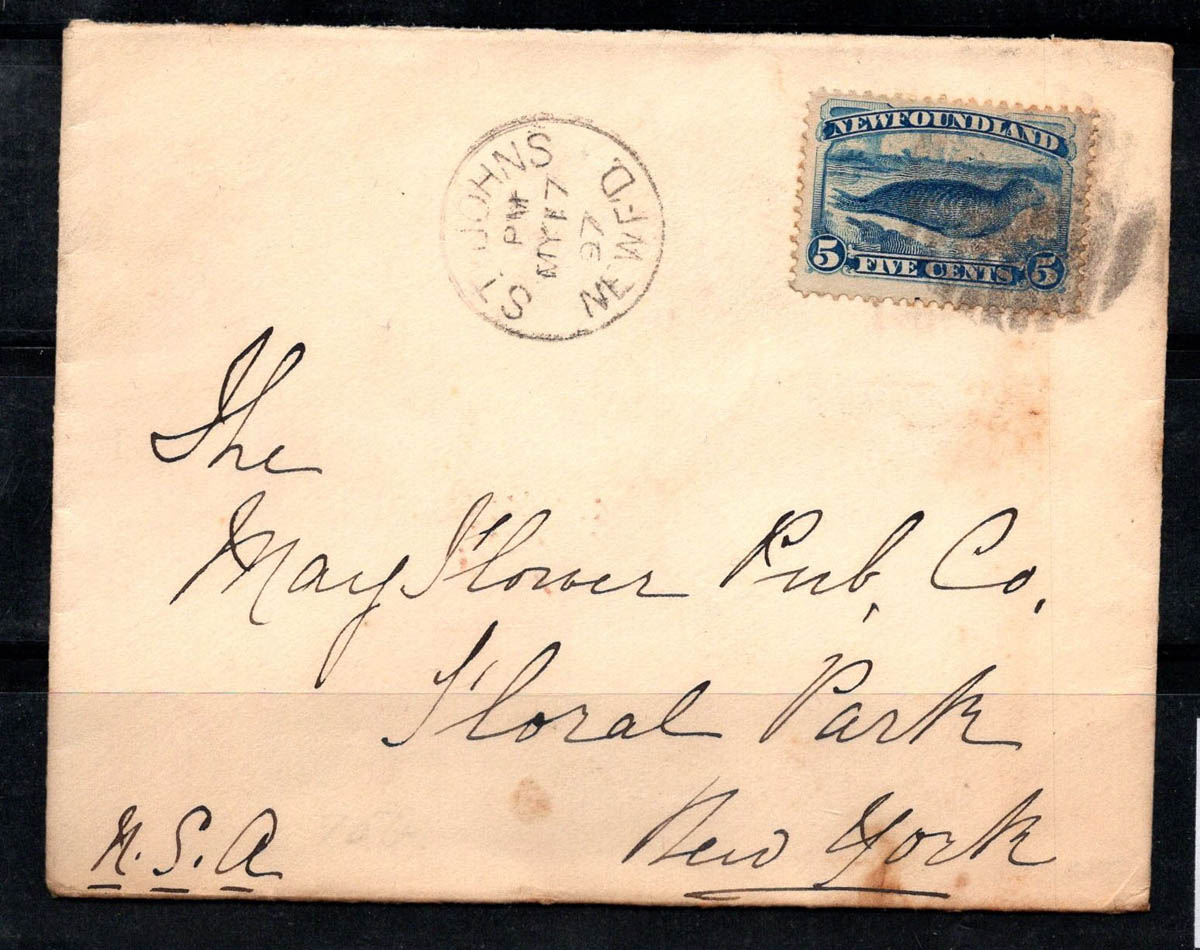 NEWFOUNDLAND
5 FIVE CENTS 5
ST. JOHNS
PM
MY 17
97
NEWF'D.
The
May Flower Pub. Co.
Floral Park
New York
U.S.A